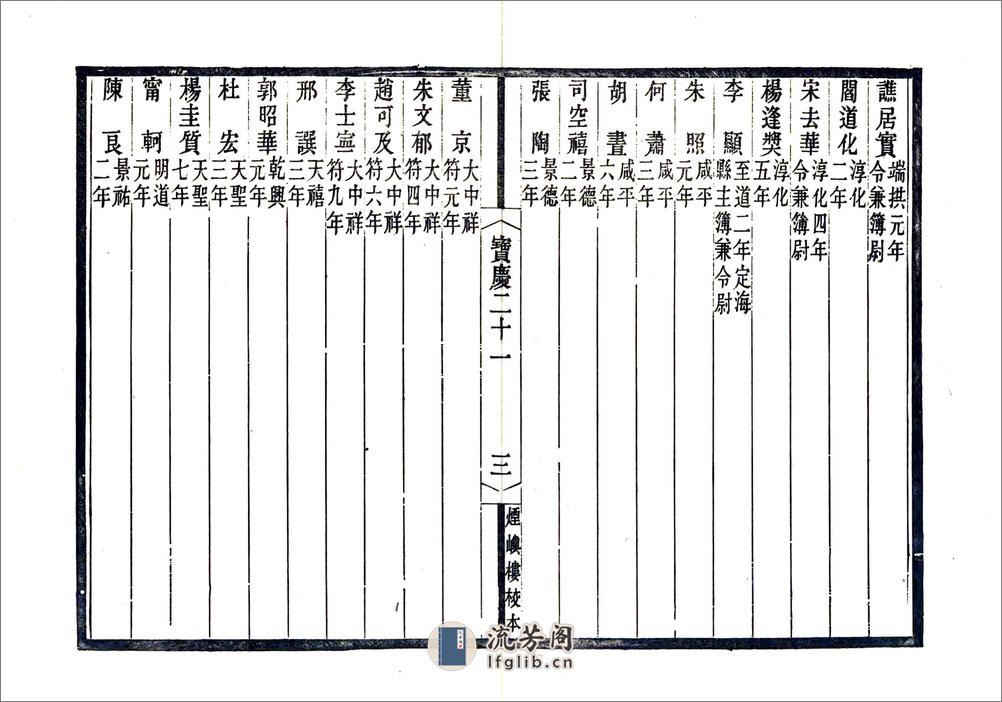 譙居實 端拱元年令兼簿尉
閻道化 淳化二年
宋去華 淳化四年令兼簿尉
楊逢奬 淳化五年
李顯 至道二年定海縣主簿兼令尉
朱照 咸平元年
何蕭 咸平三年
胡晝 咸平六年
司空禧 景德二年
張陶 景德三年
寶慶二十一
三
煙嶼樓校本
董京 大中祥符元年
朱文郁 大中祥符四年
趙可及 大中祥符六年
李士寍 大中祥符九年
邢譔 天禧三年
郭昭華 乾興元年
杜宏 天聖三年
楊圭質 天聖七年
甯軻 明道元年
陳良 景祐二年
流芳阁
lfglib.cn